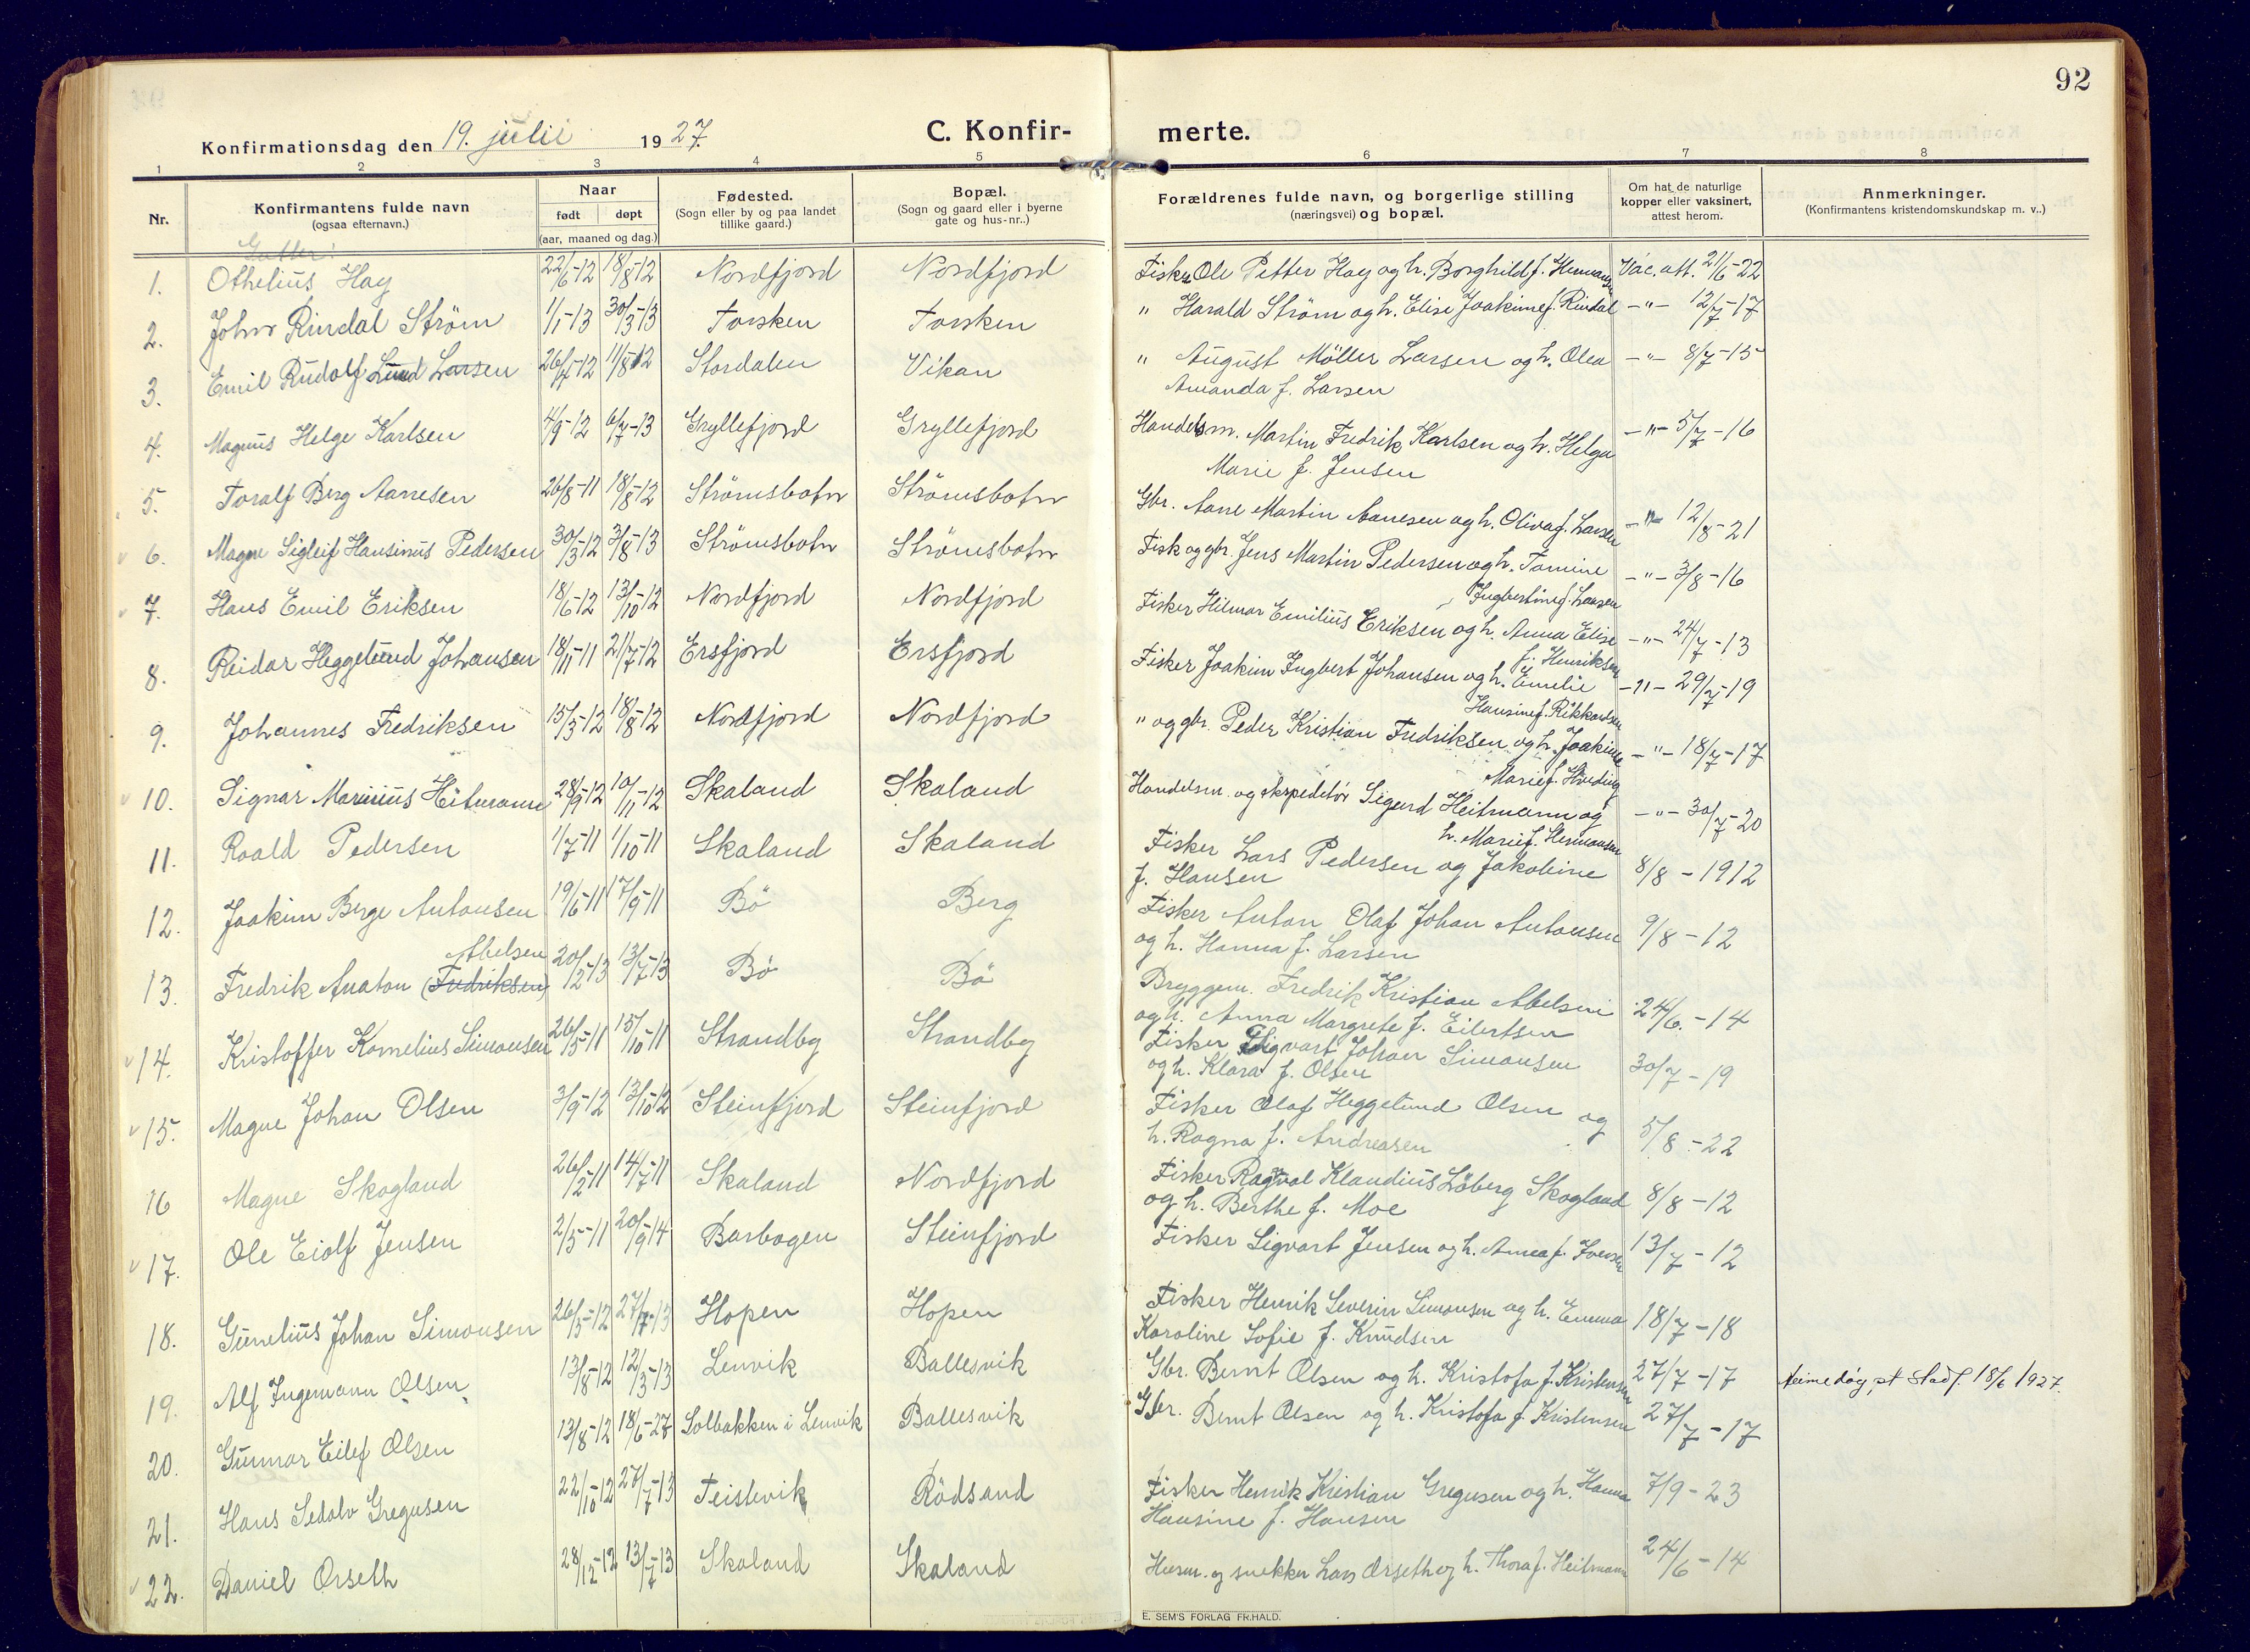 92
Konfirmationsdag den 19. julii 1927. C. Konfirmerte.
1 2 3 4 5 6 7 8
Nr. Konfirmantens fulde navn (ogsaa efternavn.) Naar født døpt (aar, maaned og dag.) Fødested. (Sogn eller by og paa landet tillike gaard.) Bopæl. (Sogn og gaard eller i byerne gate og hus-nr..) Forældrenes fulde navn, og borgerlige stilling (næringsvei) og bopæl. Om hat de naturlige kopper eller vaksinert, attest herom. Anmerkninger. (Konfirmantens kristendomskundskap m. v..)
Gutter:
1. Othelius Hay 22/6-12 18/8-12 Nordfjord Nordfjord Fisker Ole Petter Hay og h. Borghild f. Hermansen Vac. att. 21/6-22
2. John Rindal Strøm 1/1-13 30/3-13 Torsken Torsken " Harald Strøm og h. Elise Joakime f. Rindal -"- 12/7-17
3. Emil Rudolf Lund Larsen 26/7-12 11/8 12 Stordalen Vikan " August Möller Larsen og h. Olea -"- 8/7-15
Amanda f. Larsen
4. Magnus Helge Karlsen 4/9-12 6/7-13 Gryllefjord Gryllefjord Handelsm. Martin Fredrik Karlsen og h. Helga -"- 5/7-16
Marie f. Jensen
5. Toralf Berg Aanesen 26/8-11 18/8-12 Strömsbotn Strömsbotn Gbr. Aane Martin Aanesen og h. Oliva f. Larsen -"- 12/8-21
6. Magne Sigleif Hansinus Pedersen 30/3-12 3/8-13 Strömsbotn Strömsbotn Fisk og gbr. Jens Martin Pedersen og h. Tomine -"- 3/8-16
Ingbertine f. Larsen
7. Hans Emil Eriksen 18/6-12 13/10-12 Nordfjord Nordfjord Fisker Hilmar Emilius Eriksen og h. Anna Elise -"- 24/7-13
f. Henriksen
8. Reidar Heggelund Johansen 18/11-11 21/7-12 Ersfjord Ersfjord Fisker Joakim Ingbert Johansen og h. Emelie -"- 29/7-19
Hansine f. Rikkardsen
9. Johannes Fredriksen 15/5-12 18/8-12 Nordfjord Nordfjord " og gbr. Peder Kristian Fredriksen og h. Joakime -"- 18/7-17
Marie f. Hveding
10. Signar Marinius Heitmann 28/9-12 10/11-12 Skaland Skaland Handelsm. og ekspeditør Sigurd Heitmann og -"- 30/7-20
h. Marie f. Hermansen
11. Roald Pedersen 1/7-11 1/10-11 Skaland Skaland Fisker Lars Pedersen og Jakobine 8/8-1912
f. Hansen
12. Joakim Berge Antonsen 19/6-11 17/9-11 Bø Berg Fisker Anton Olaf Johan Antonsen 9/8-12
og h. Hanna f. Larsen
Abelsen
13. Fredrik Anaton (Fredriksen) 20/12-13 13/7-13 Bø Bö Bryggem. Fredrik Kristian Abelsen 24/6.-14
og h. Anna Margrete f. Eilertsen
14. Kristoffer Kornelius Simonsen 26/5-11 15/10-11 Strandby Strandby Fisker Sigvart Johan Simonsen 30/7-19
og h. Klara f. Olsen
15. Magne Johan Olsen 3/9-12 13/10-12 Steinfjord Steinfjord Fisker Olaf Heggelund Olsen og 5/8-22
h. Ragna f. Andreasen
16 Magne Skogland 26/2-11 14/7-11 Skaland Nordfjord Fisker Ragval Klaudius Löberg Skogland 8/8-12
og h. Berthe f. Moe
17. Ole Eiolf Jensen 2/5-11 20/9-14 Barbogen Steinfjord Fisker Sigvart Jensen og h. Anna f. Iversen 13/7-12
18. Gunelius Johan Simonsen 26/5-12 27/7-13 Hopen Hopen Fisker Henrik Severin Simonsen og h. Emma 18/7-18
Karoline Sofie f. Knudsen
19. Alf Ingemann Olsen 13/8-12 12/3-13 Lenvik Ballesvik Gbr. Bernt Olsen og h. Kristofa f. Kristensen 27/7-17 heimedøypt stadf. 18/6 1927.
20. Gunnar Eilef Olsen 13/8-12 18/6-27 Solbakken i Lenvik Ballesvik Gbr. Bernt Olsen og h. Kristofa f. Kristensen 27/7-17
21. Hans Sedolv Gregusen 22/10-12 27/7-13 Teistevik Rödsand Fisker Henrik Kristian Gregusen og h. Hanna 7/9-23
Hansine f. Hansen
22. Daniel Orseth 28/12-12 13/7-13 Skaland Skaland Husm. og snekker Lars Orseth og h. Thora f. Heitmann 24/6-14
E. SEM'S FORLAG FR.HALD.